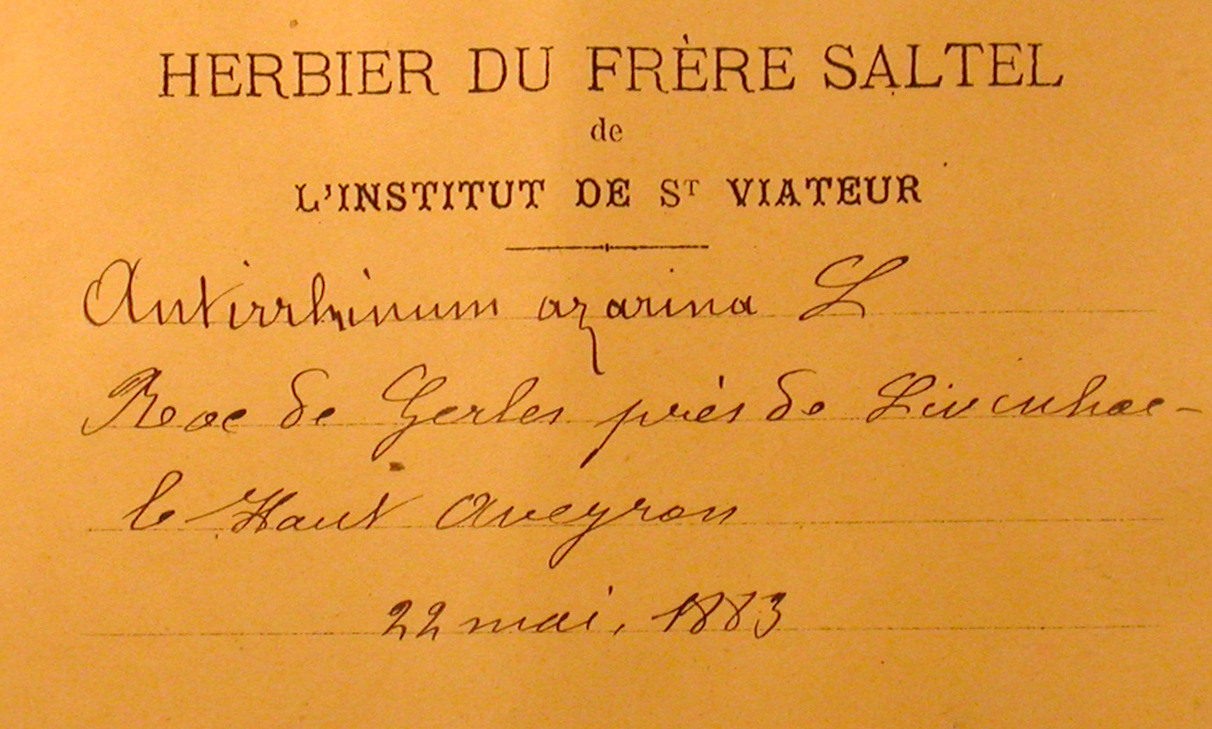 HERBIER DU FRÈRE SALTEL
de
L'INSTITUT DE ST VIATEUR
Antirrhinum azarina L
Roc de Gerles près de Livinhac-
le-Haut Aveyron
22 mai, 1883